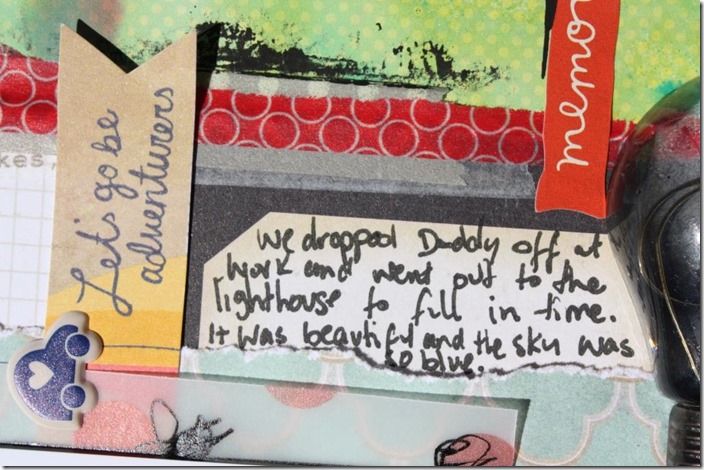 memo
kes,
Let's go be
adventurers
We dropped Daddy off at
work and went out to the
lighthouse to fill in time.
It was beautiful and the sky was
so blue.